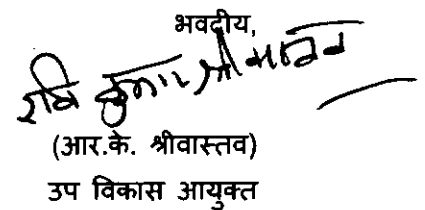 भवदीय,
रवि कुमार श्रीवास्तव
(आर.के. श्रीवास्तव)
उप विकास आयुक्त